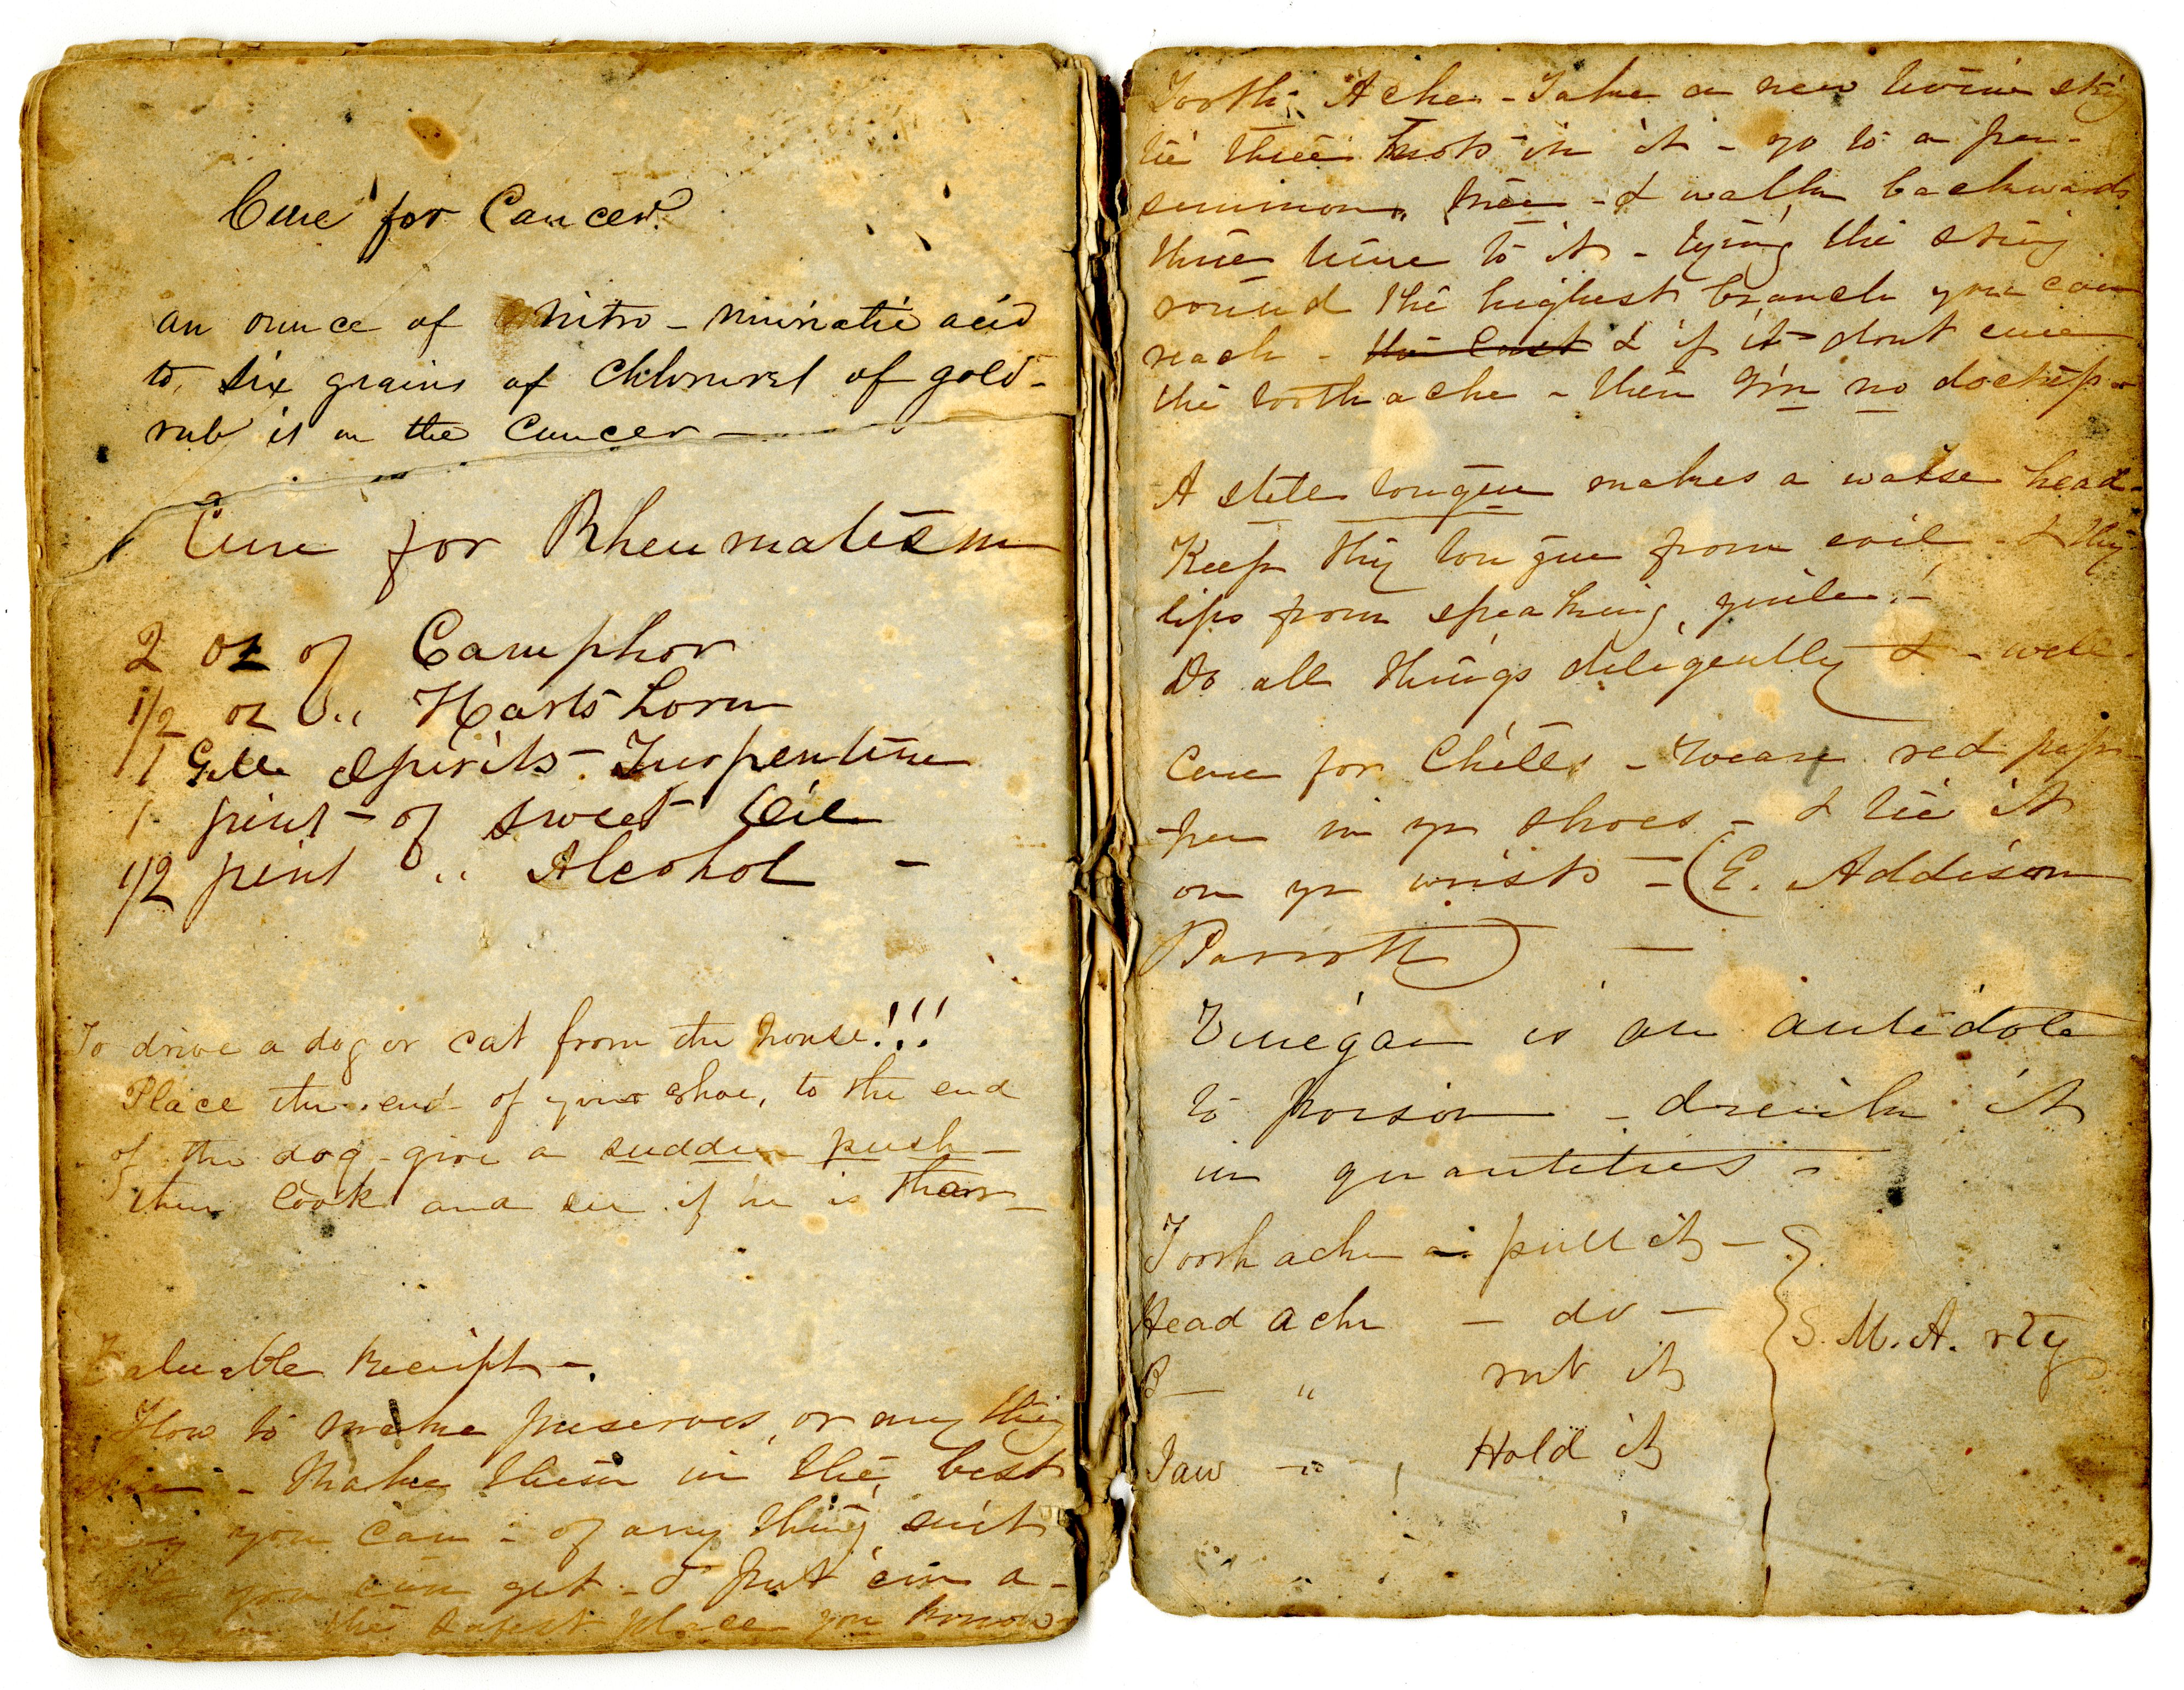 Cure for Cancer.
an ounce of nitro-muriatic acid
to six grains of Chloruret of gold-
rub it on the Cancer
Cure for Rheumatism
2 oz of Camphor
1/2 oz " Hartshorn
1 Gill Spirits-Turpentine
1 pint - of sweet Oil
1/2 pint " Alcohol -
To drive a dog or cat from the house!!!
Place the end of your shoe, to the end
of the dog - give a sudden push -
then look and see if he is thar -
Valuable Receipt -.
How to make preserves, or any thing
else - Make them in the best
way you can - of any thing suit
you can get - & put 'em a-
way in the safest place you know
Tooth Ache - Take a new twine string
tie three knots in it - go to a per-
simmon tree - & walk backwards
three time to it - tying the string
round the highest branch you can
reach - & if it dont cure
the toothache - then I'm no doctor
A still tongue makes a wise head -
Keep thy tongue from evil - & thy
lips from speaking guile! -
Do all things diligently & - well.
Cure for Chills - Wear red pep-
per in yr shoes - & tie it
on yr wrists - (E. Addison
Parrott) -
Vinegar is an antidote
to poison - drink it
in quantities -
Tooth ache - pull it -
Head ache - do -
B— " rub it
Jaw - " , Hold it
S. M. A. rty